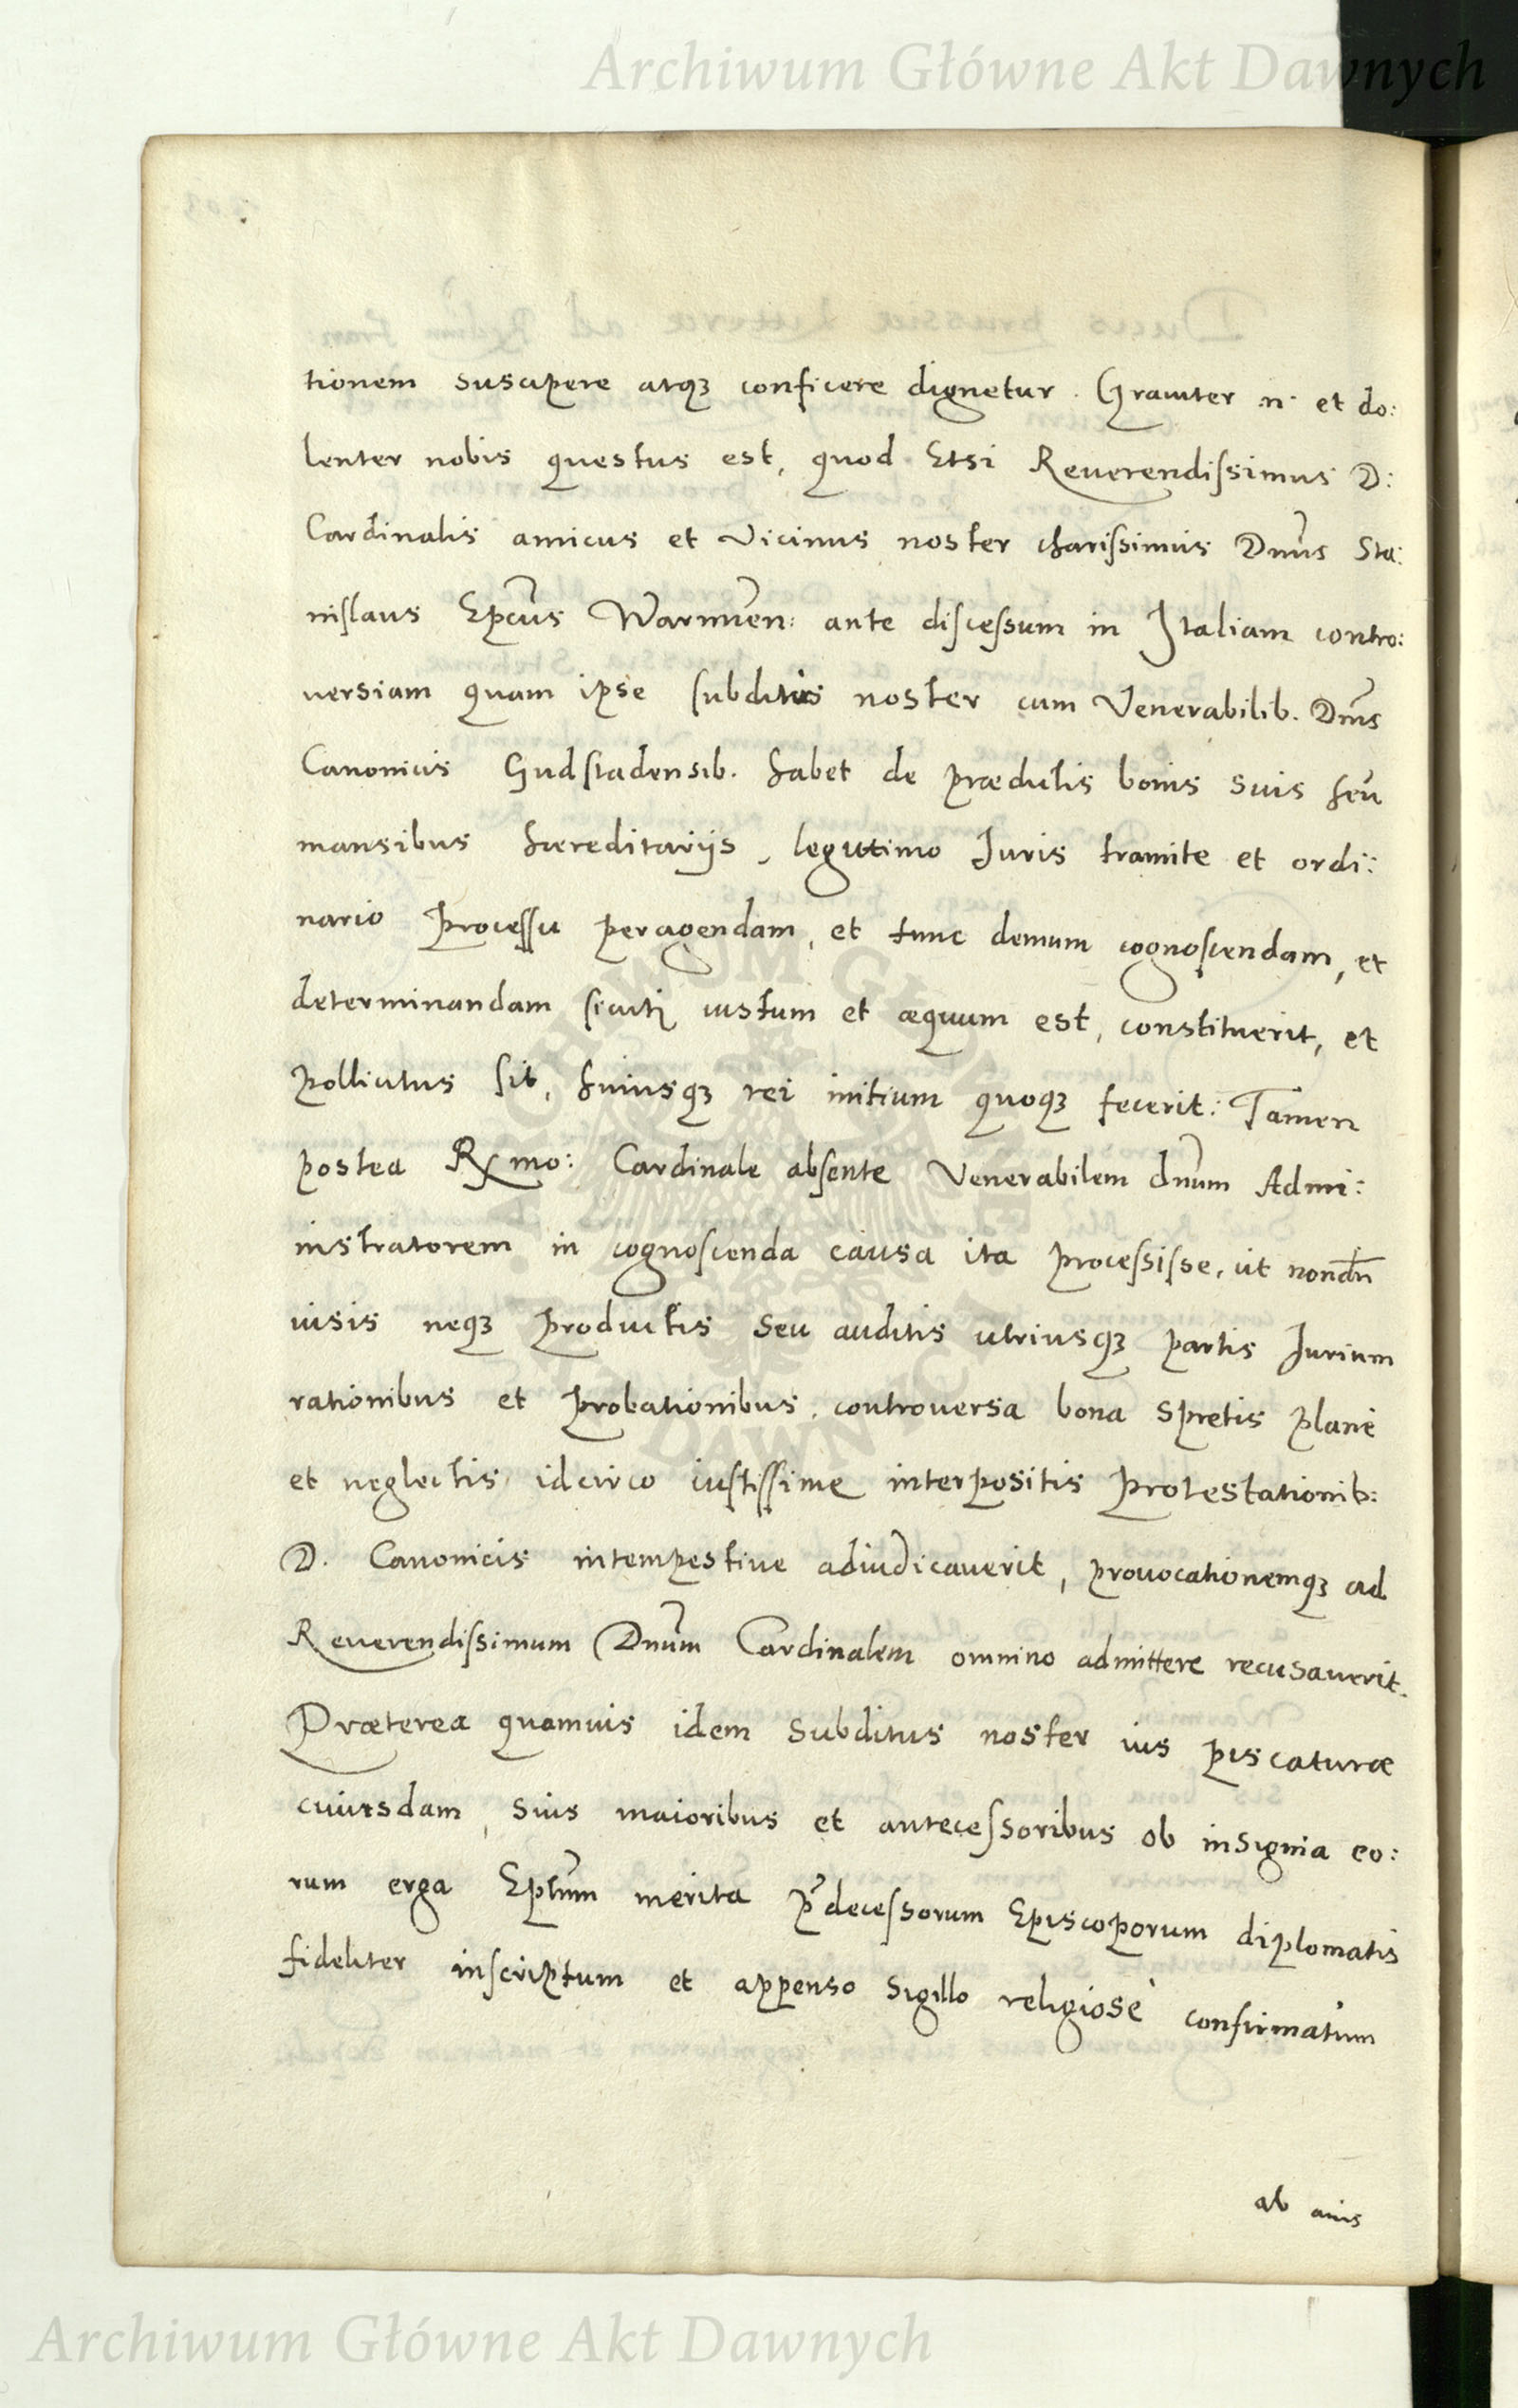 Archiwum Główne Akt Dawnych
tionem suscipere atqȝ conficere dignetur. Grauiter n. et do:
lenter nobis questus est, quod Etsi Reuerendissimus D:
Cardinalis amicus et Vicinus noster charissimus Dnus Sta:
nislaus Epcus Warmien: ante discessum in Italiam contro:
uersiam quam ipse subditus noster cum Venerabilib. Dnis
Canonicis Gudstadensib. habet de prædictis bonis suis seu
mansibus hæreditarijs, legittimo Iuris tramite et ordi:
nario processu peragendam, et tunc demum cognoscendam, et
determinandam sicuti iustum et æquum est, constituerit, et
pollicitus sit, huiusqȝ rei initium quoqȝ fecerit: Tamen
postea Rmo: Cardinale absente Venerabilem dnum Admi:
nistratorem in cognoscenda causa ita processisse, ut nondũ
uisis neqȝ productis seu auditis utriusqȝ partis Iurium
rationibus et probationibus, controuersa bona spretis planè
et neglectis idcirco iustissime interpositis protestationib:
D. Canonicis intempestiue adiudicauerit, prouocationemqȝ ad
Reuerendissimum Dnum Cardinalem omnino admittere recusauerit.
Præterea quamuis idem subditus noster ius piscaturæ
cuiusdam, suis maioribus et antecessoribus ob insignia eo:
rum erga Eptum merita pdecessorum Episcoporum diplomatis
fideliter inscriptum et appenso sigillo religiosè confirmatum
ab auis
Archiwum Główne Akt Dawnych